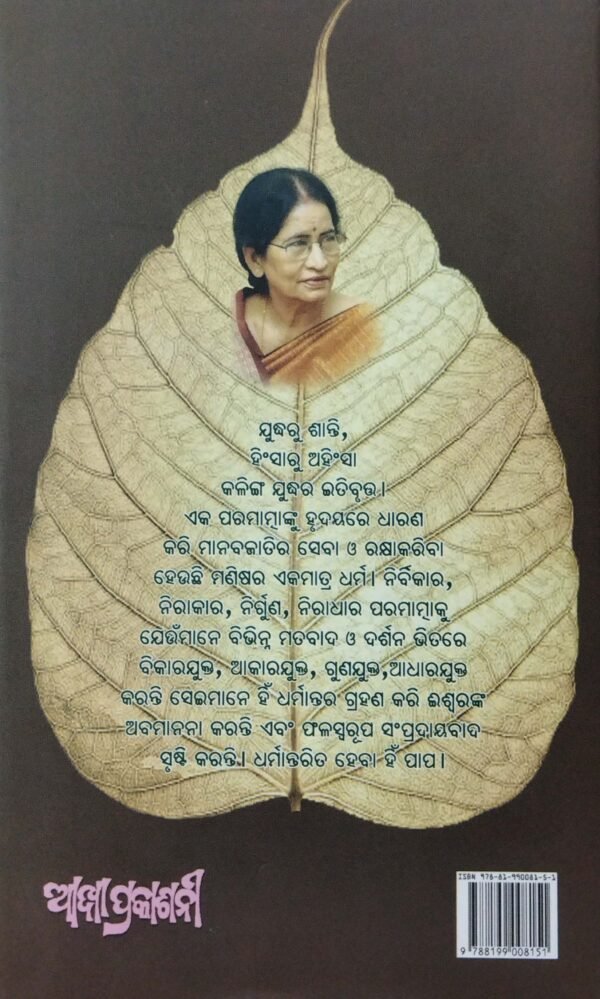 ଯୁଦ୍ଧରୁ ଶାନ୍ତି,
ହିଂସାରୁ ଅହିଂସା
କଳିଙ୍ଗ ଯୁଦ୍ଧର ଇତିବୃତ୍ତ।
ଏକ ପରମାତ୍ମାଙ୍କୁ ହୃଦୟରେ ଧାରଣ
କରି ମାନବଜାତିର ସେବା ଓ ରକ୍ଷାକରିବା
ହେଉଛି ମଣିଷର ଏକମାତ୍ର ଧର୍ମ। ନିର୍ବିକାର,
ନିରାକାର, ନିର୍ଗୁଣ, ନିରାଧାର ପରମାତ୍ମାକୁ
ଯେଉଁମାନେ ବିଭିନ୍ନ ମତବାଦ ଓ ଦର୍ଶନ ଭିତରେ
ବିକାରଯୁକ୍ତ, ଆକାରଯୁକ୍ତ, ଗୁଣଯୁକ୍ତ,ଆଧାରଯୁକ୍ତ
କରନ୍ତି ସେଇମାନେ ହିଁ ଧର୍ମାନ୍ତର ଗ୍ରହଣ କରି ଈଶ୍ୱରଙ୍କ
ଅବମାନନା କରନ୍ତି ଏବଂ ଫଳସ୍ୱରୂପ ସଂପ୍ରଦାୟବାଦ
ସୃଷ୍ଟି କରନ୍ତି। ଧର୍ମାନ୍ତରିତ ହେବା ହିଁ ପାପ।
ଆଦ୍ୟା ପ୍ରକାଶନୀ
ISBN 978-81-990081-5-1
9 788199 008151